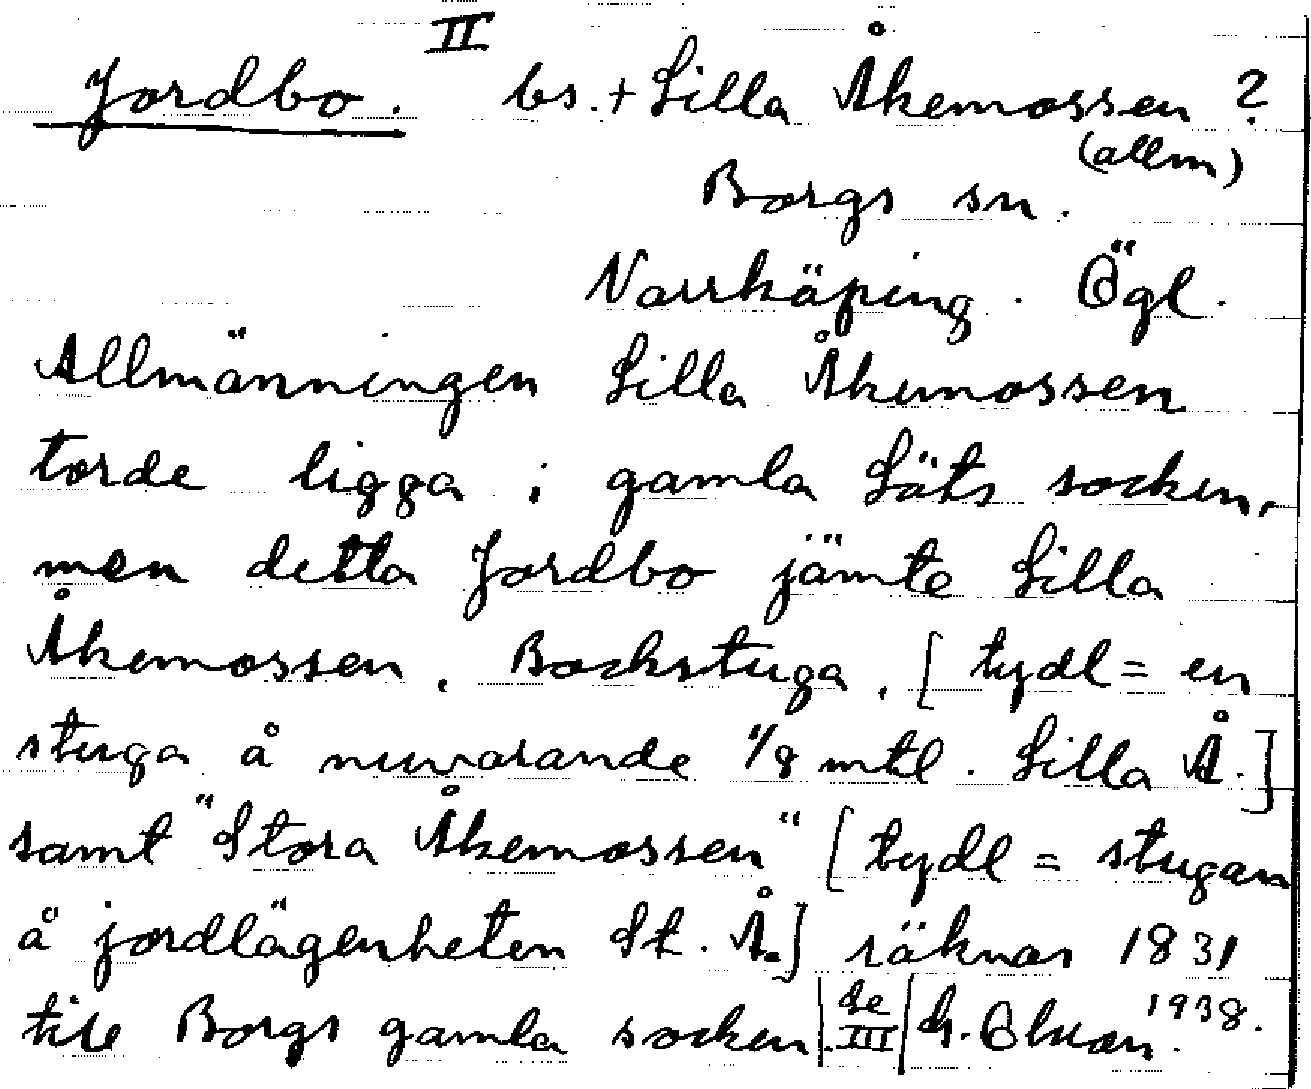 II
Jordbo. bs. + Lilla Åkemossen ?
(allm)
Borgs sn.
Norrköping. Ögl.
Allmänningen Lilla Åkemossen
torde ligga i gamla Läts socken,
men detta Jordbo jämte Lilla
Åkemossen, Backstuga, [tydl = en
stuga å nuvarande 1/8 mtl. Lilla Å.]
samt "Stora Åkemossen" [tydl = stugan
å jordlägenheten St. Å.] räknas 1831
till Borgs gamla socken. | se III | 1938.